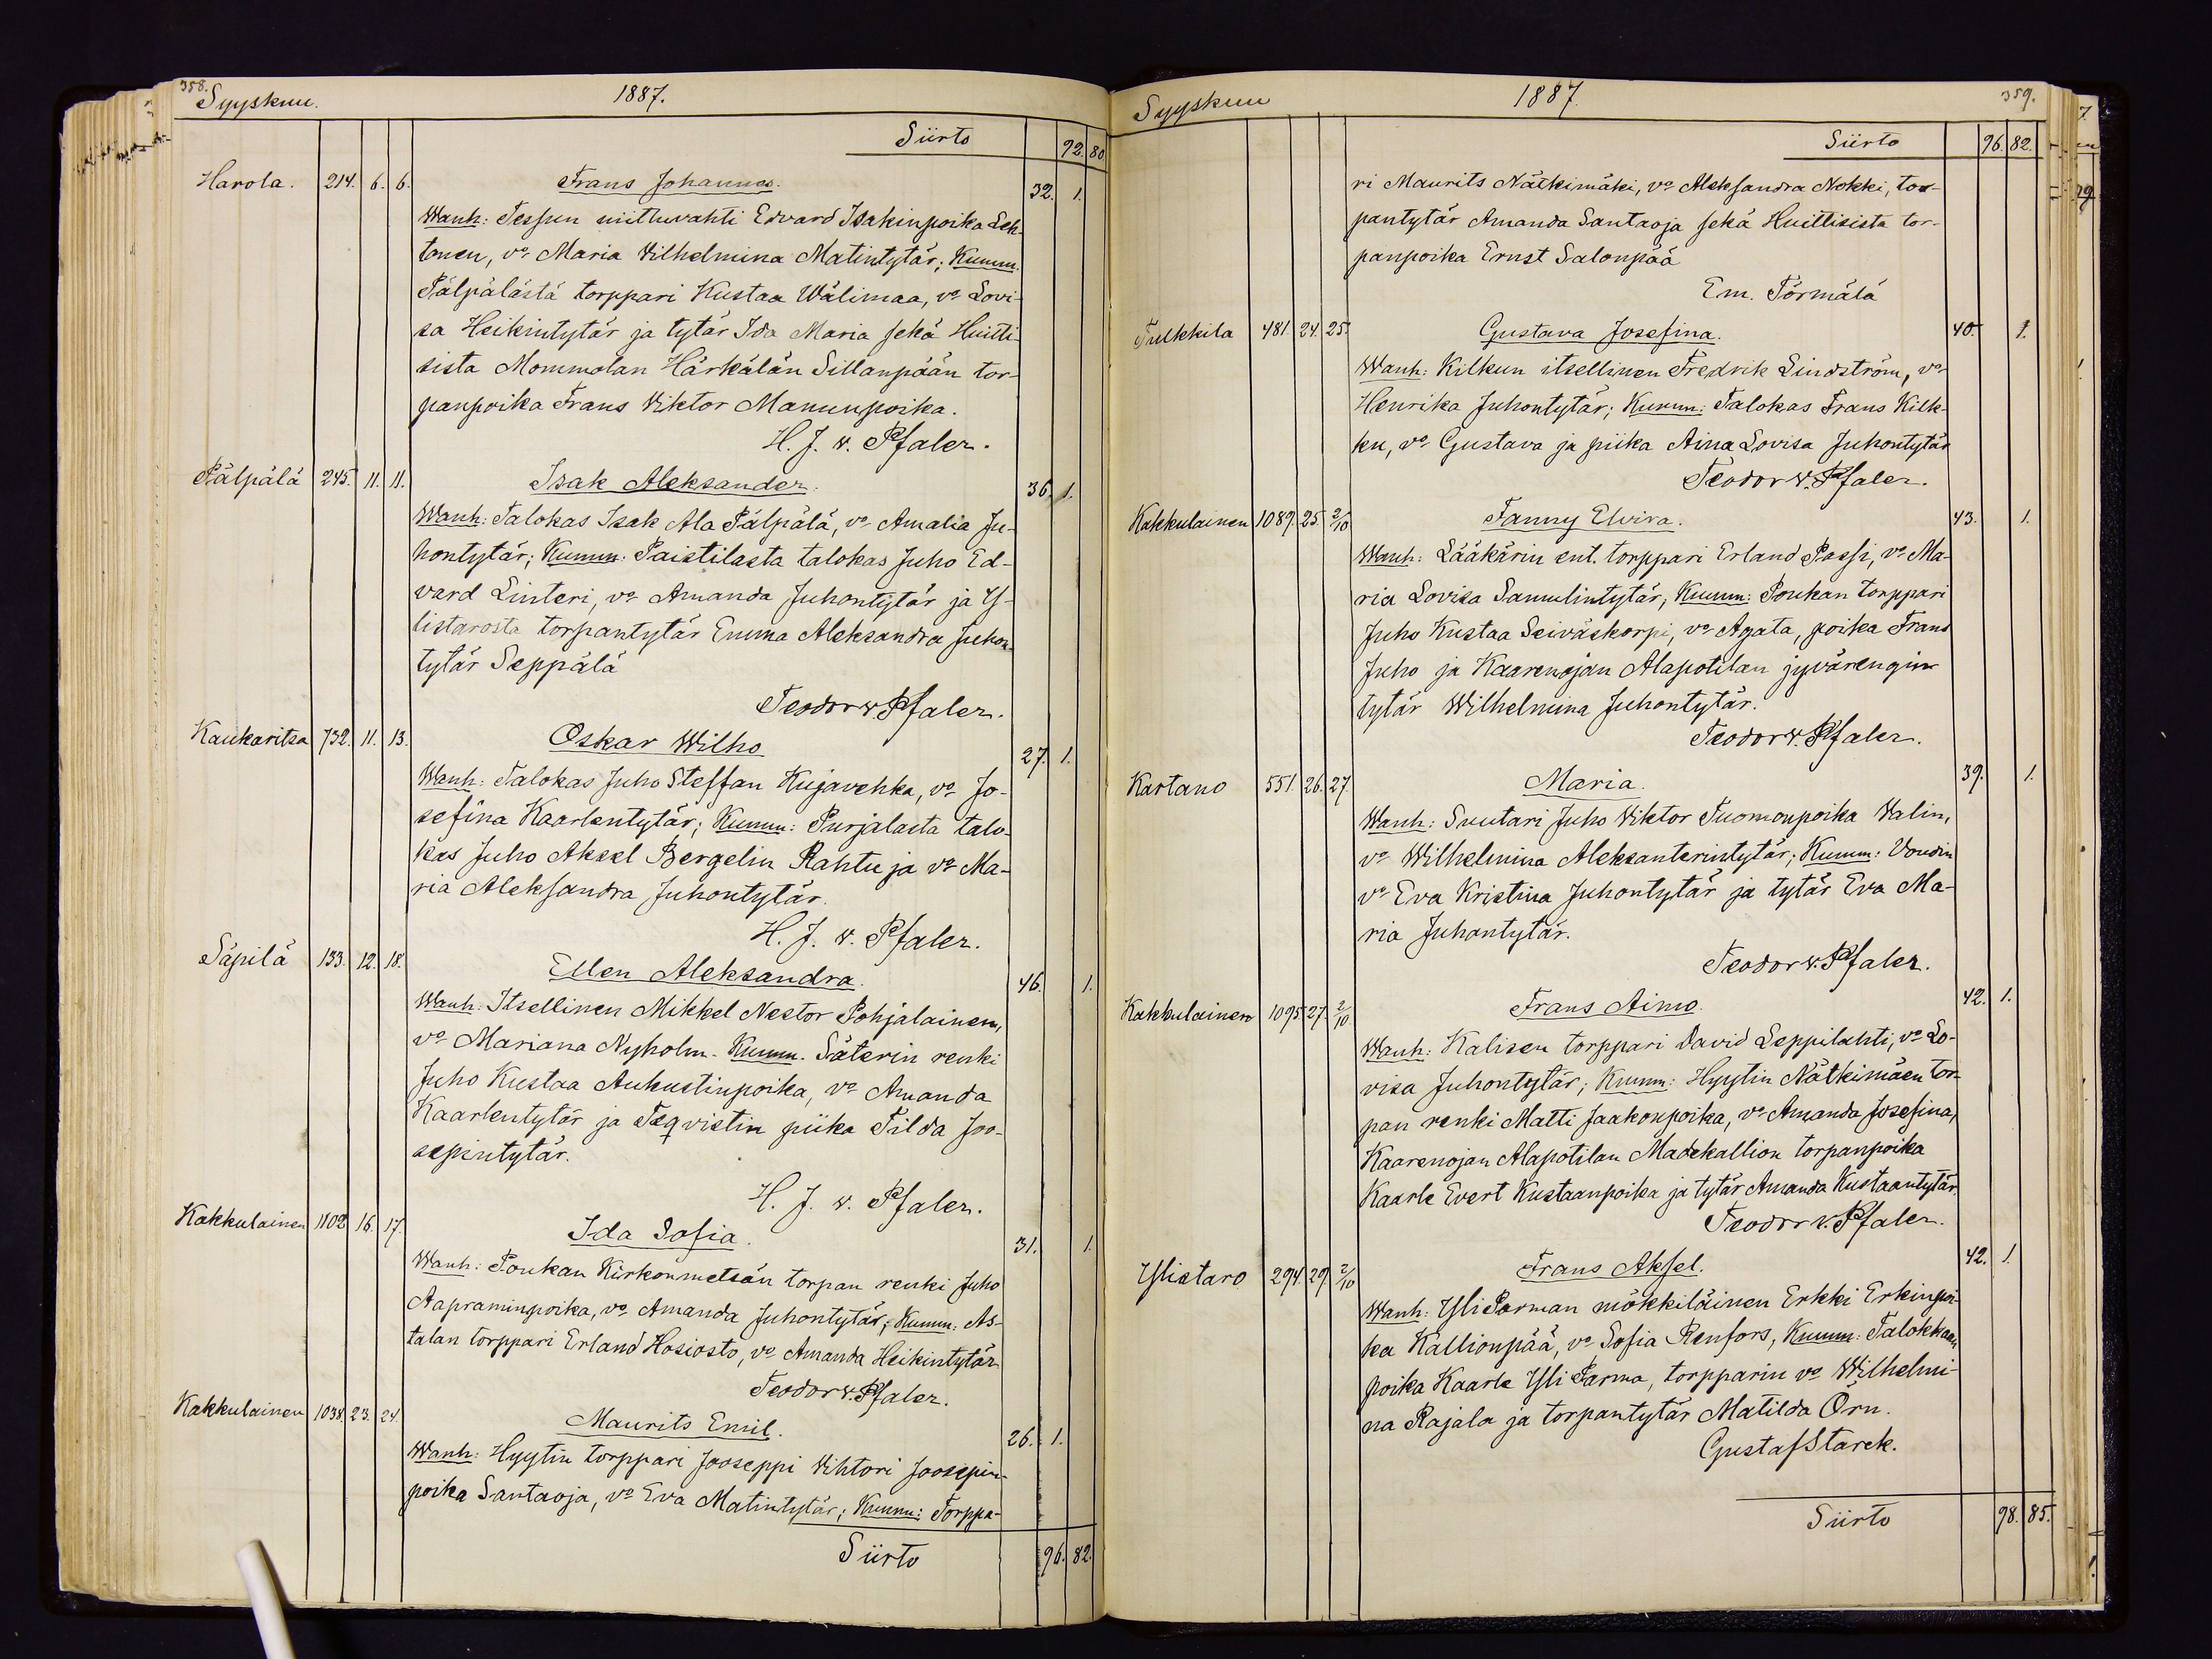 358.
Syyskuu. 1887.
Siirto 92. 80
Harola. 214. 6. 6. Frans Johannes. 32. 1.
Wanh: Tessun niittuvahti Edvard Isakinpoika Leh-
tonen, vo Maria Vilhelmina Matintytär; Kumm.
Pälpälästä torppari Kustaa Wälimaa, vo Lovi-
sa Heikintytär ja tytär Ida Maria sekä Huitti-
sista Mommolan Härkälän Sillanpään tor-
panpoika Frans Viktor Manunpoika.
H. J. v. Pfaler.
Pälpälä 245. 11. 11. Isak Aleksander. 36. 1.
Wanh: Talokas Isak Ala Pälpälä, vo Amalia Ju-
hontytär; Kumm: Paistilasta talokas Juho Ed-
vard Linteri, vo Amanda Juhontytär ja Y-
listarosta torpantytär Emma Aleksandra Juhon-
tytär Seppälä
Teodor v Pfaler.
Kaukaritsa 732. 11. 13. Oskar Wilho 27. 1.
Wanh: Talokas Juho Steffan Kujavehka, vo Jo-
sefina Kaarlentytär; Kumm: Purjalasta talo-
kas Juho Aksel Bergelin Rahtu ja vo Ma-
ria Aleksandra Juhontytär.
H. J. v. Pfaler.
Säpilä 133. 12. 18. Ellen Aleksandra. 46. 1.
Wanh: Itsellinen Mikkel Nestor Pohjalainen,
vo Mariana Nyholm. Kumm. Säterin renki
Juho Kustaa Aukustinpoika, vo Amanda
Kaarlentytär ja Teqvistin piika Tilda Joo-
sepintytär.
H. J. v. Pfaler.
Kakkulainen 1102 16. 17. Ida Sofia. 31. 1.
Wanh: Poukan Kirkonmetsän torpan renki Juho
Aapraminpoika, vo Amanda Juhontytär; Kumm: As-
talan torppari Erland Hosiosto, vo Amanda Heikintytär
Teodor v. Pfaler.
Kakkulainen 1038. 23. 24. Maurits Emil. 26. 1.
Wanh: Hyytin torppari Jooseppi Vihtori Joosepin-
poika Santaoja, vo Eva Matintytär; Kumm: Torppa-
Siirto 96. 82.
Syyskuu 1887. 359.
Siirto 96. 82.
ri Maurits Nätkimäki, vo Aleksandra Nokki, tor-
pantytär Amanda Santaoja sekä Huittisista tor-
panpoika Ernst Salonpää
Em. Törmälä
Tulkkila 481. 24. 25. Gustava Josefina. 40. 1.
Wanh: Kilkun itsellinen Fredrik Lindström, vo
Henrika Juhontytär; Kumm: Talokas Frans Kilk-
ku, vo Gustava ja piika Aina Lovisa Juhontytär
Teodor v. Pfaler.
Kakkulainen 1089. 25. 2/10 Fanny Elvira. 43. 1.
Wanh: Lääkärin ent. torppari Erland Passi, vo Ma-
ria Lovisa Samulintytär; Kumm: Poukan torppari
Juho Kustaa Seiväskorpi, vo Agata, poika Frans
Juho ja Kaarenojan Alapotilan jyvärengin
tytär Wilhelmina Juhontytär.
Teodor v. Pfaler.
Kartano 551. 26. 27. Maria. 39. 1.
Wanh: Suutari Juho Viktor Tuomonpoika Valin,
vo Wilhelmina Aleksanterintytär; Kumm: Voudin
vo Eva Kristina Juhontytär ja tytär Eva Ma-
ria Juhontytär.
Teodor v. Pfaler.
Kakkulainen 1095 27 2/10 Frans Aimo. 42. 1.
Wanh: Kalisen torppari David Leppilahti, vo Lo-
visa Juhontytär; Kumm: Hyytin Nätkimäen tor-
pan renki Matti Jaakonpoika, vo Amanda Josefina,
Kaarenojan Alapotilan Madekallion torpanpoika
Kaarle Evert Kustaanpoika ja tytär Amanda Kustaantytär.
Teodor v. Pfaler.
Ylistaro 294. 29. 2/10 Frans Aksel. 42. 1.
Wanh: Yli Parman mökkiläinen Erkki Erkinpoi-
ka Kallionpää, vo Sofia Renfors, Kumm: Talokkaan
poika Kaarle Yli Parma, torpparin vo Wilhelmi-
na Rajala ja torpantytär Matilda Örn.
Gustaf Starck.
Siirto 98. 85.